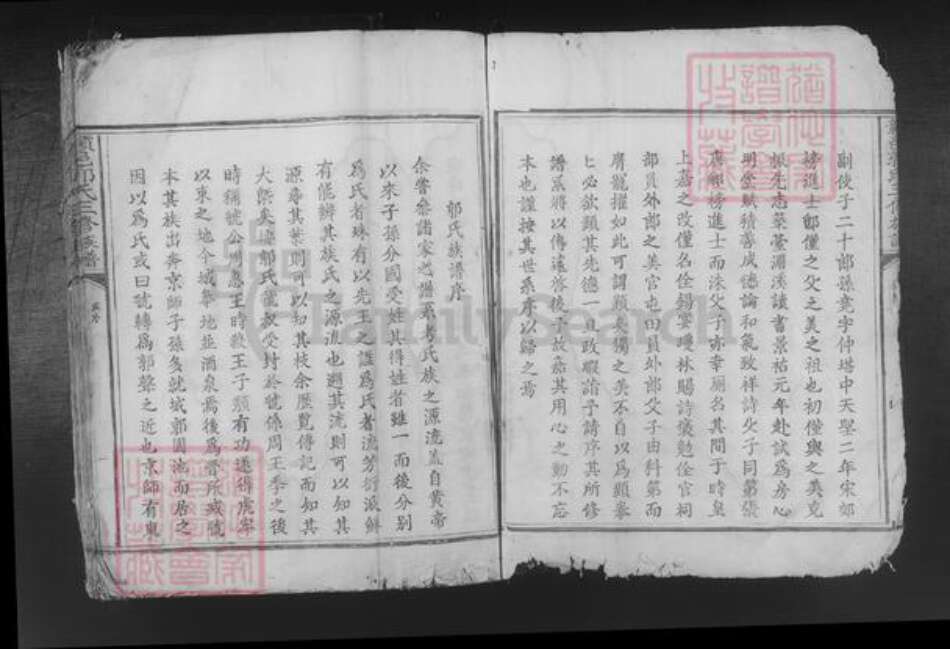 副後子二十郎孫竞字仲塔中天聖二年宋郊
榜進士郎僅之父之美之祖也初僅與之美克
振先志築臺湄溪讀書景祐元年赴試為房心
明堂賦積善成德論和氣致祥詩父子同第張
唐卿榜進士而洙父子亦幸廁名其間于時皇
上嘉之改僅名佺錫宴瓊林賜詩儀勉佺官祠
部員外郎之美官屯田員外郎父子由科第而
膺寵擢如此可謂顯矣獨之美不自以為顯拳
匕必欲顯其先德一旦政暇詣予請序其所修
譜系將以傳遠啓後予故嘉其用心之勤不忘
本也謹按其世系序以歸之焉
郭氏族譜序
余嘗叅諸家之譜系考氏族之源流盖自黄帝
以來子孫分國受姓其得姓者雖一而後分别
為氏者殊有以先王之諡為氏者流芳衍派鮮
有能辨其族氏之源流也遡其流則可以知其
源尋其葉則可以知其枝余歷覽傳記而知其
大槩矣據郭氏虢叔受封於虢係周王季之後
時稱虢公周惠王時殺王子頹有功遂得虎牢
以東之地今城皋地並酒泉焉後為晉所滅虢
本其族出奔京師子孫多就城郭園池而居之
因以為氏或曰虢轉為郭聲之近也京師有東
FamilySearch